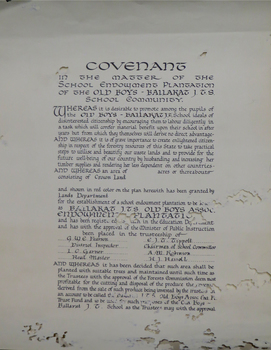 COVENANT
IN THE MATTER OF THE
SCHOOL ENDOWMENT PLANTATION
OF THE OLD BOYS - BALLARAT J.T.S.
SCHOOL COMMUNITY.
WHEREAS it is desirable to promote among the pupils of
the OLD BOYS - BALLARAT J.T.S. School ideals of
disinterested citizenship by encouraging them to labour diligently in
a task which will confer material benefit upon their school in after
years but from which they themselves will derive no direct advantage
AND WHEREAS it is of prime importance to create enlightened citizen-
ship in respect of the forestry resources of this State to take practical
steps to utilise and beautify our waste lands and to provide for the
future well-being of our country by husbanding and increasing her
timber supplies and rendering her less dependent on other countries
AND WHEREAS an area of acres or thereabouts
consisting of Crown Land
and shown in red color on the plan hereunto has been granted by
Lands Department
for the establishment of a school endowment plantation to be known as
BALLARAT J.T.S. OLD BOYS ASSOC.
ENDOWMENT PLANTATION
and has been with the Education Department
and has with the approval of the Minister of Public Instruction
been placed in the trusteeship of
District Inspector Chairman of School Committee
Head Master
AND WHEREAS it has been decided that such area shall be
planted with suitable trees and maintained until such time as
the Trustees with the approval of the Forests Commission deem
profitable for the cutting and disposal of the produce
derived from the sale of such produce being invested by the trustees in
an account to be called the Old Boys Assoc.
Trust Fund and to be such purposes of the Old Boys -
Ballarat J.T.S. School as the Trustees may with the approval